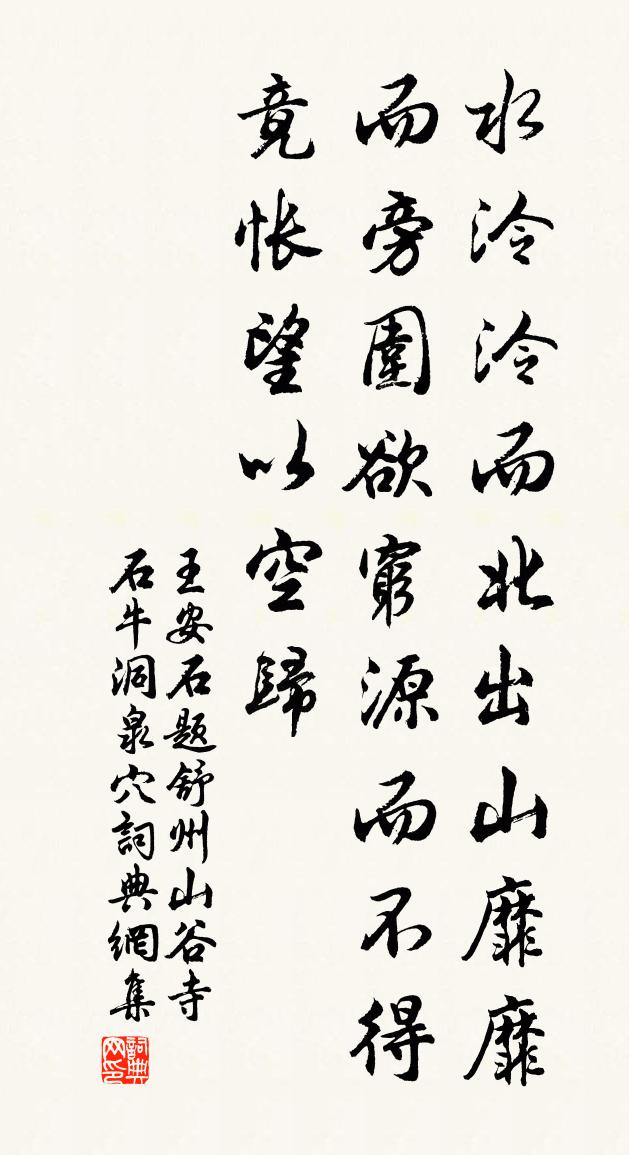 水泠泠而北出山靡靡
而旁圍欲窮源而不得
竟悵望以空歸
王安石题舒州山谷寺
石牛洞泉穴詞典網集
詞典网印